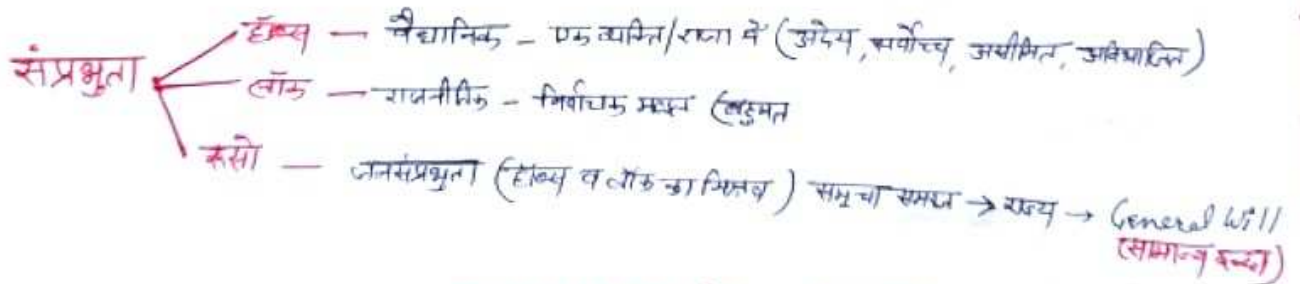 संप्रभुता
हॉब्स — वैधानिक - एक व्यक्ति/राजा में (अदेय, सर्वोच्च, असीमित, अविभाजित)
लॉक — राजनीतिक - निर्वाचक मण्डल (बहुमत
रूसो — जनसंप्रभुता (हॉब्स व लॉक का मिश्रण) समूचा समाज → राज्य → General Will
(सामान्य इच्छा)